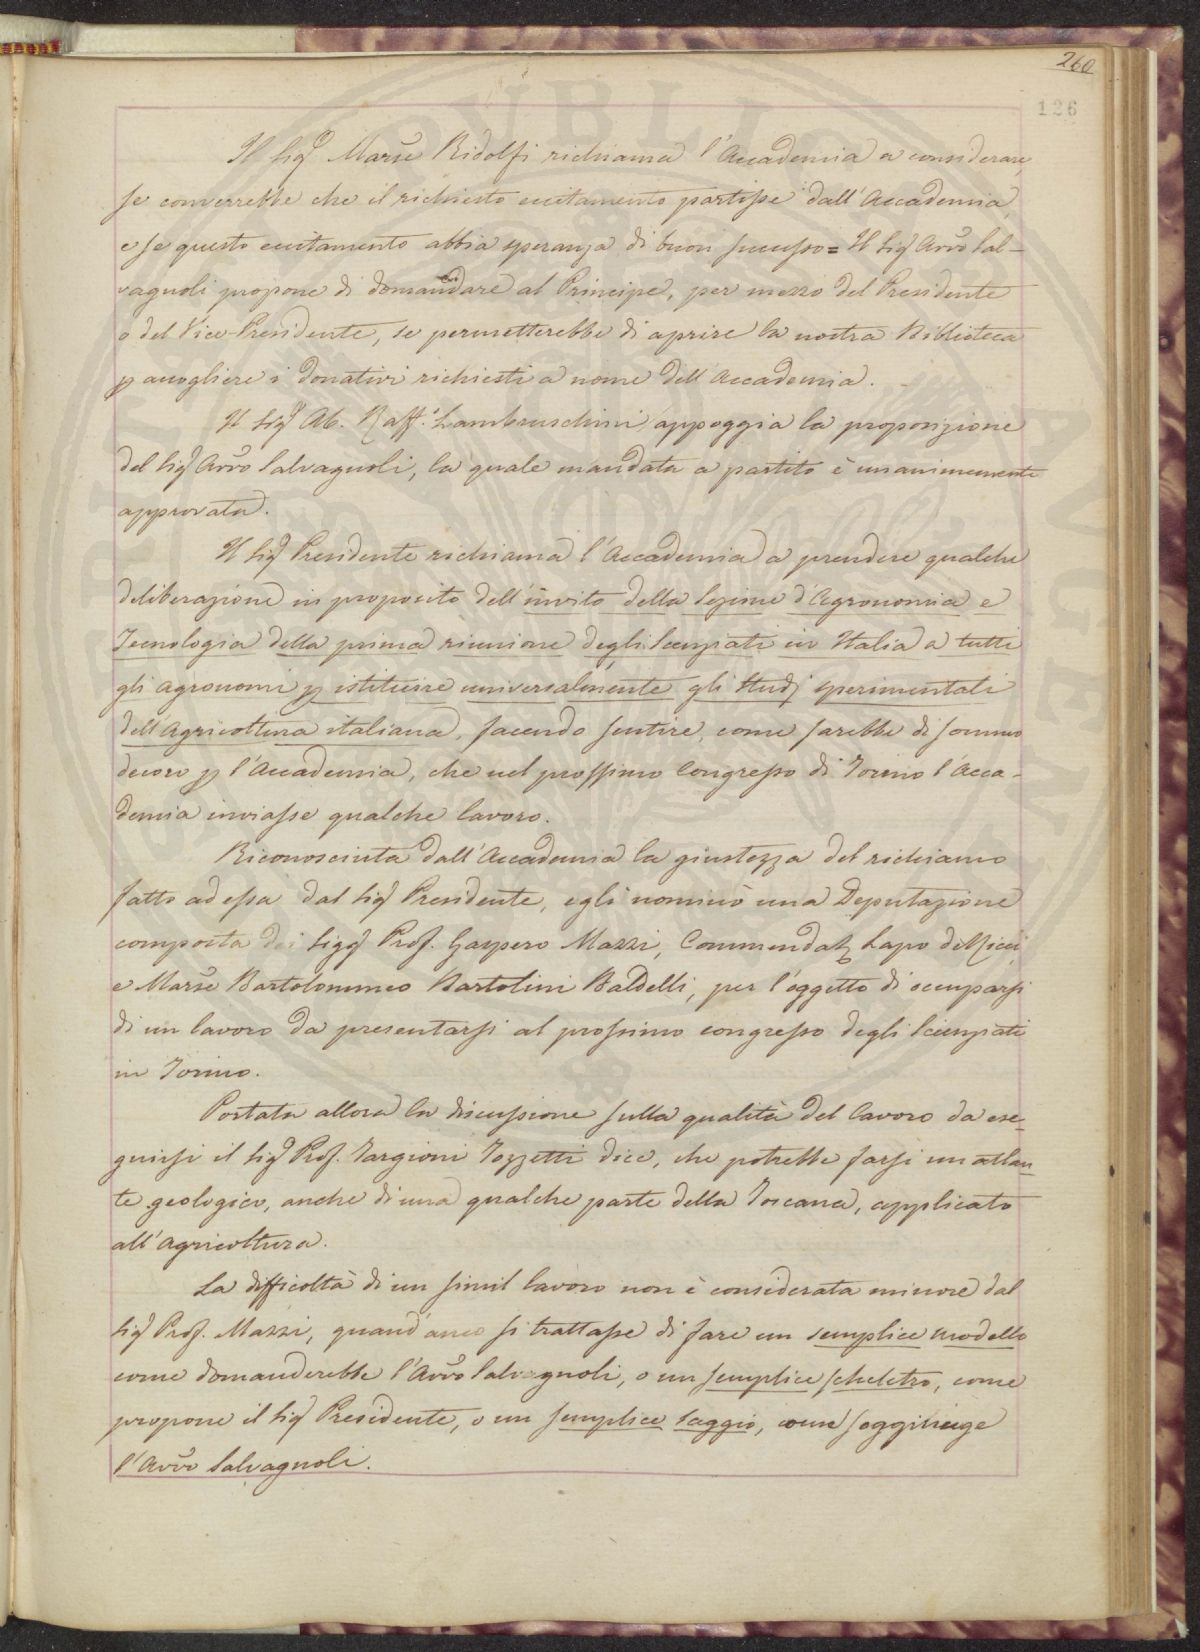 260
126
Il Sigr Marse Ridolfi richiama l'Accademia a considerare,
se converrebbe che il richiesto eccitamento partisse dall'Accademia,
e se questo eccitamento abbia speranza di buon successo = Il Sigr Avvo Sal-
vagnoli propone di domandare al Principe, per mezzo del Presidente
o del Vice-Presidente, se permetterebbe di aprire la nostra Biblioteca
p accogliere i donativi richiesti a nome dell'Accademia.
Il Sigr Ab. Raff.e Lambruschini appoggia la proposizione
del Sigr Avvo Salvagnoli, la quale mandata a partito è unanimemente
approvata.
Il Sigr Presidente richiama l'Accademia a prendere qualche
deliberazione in proposito dell'invito della Sezione d'Agronomia e
Tecnologia della prima riunione degli Scenziati in Italia a tutti
gli agronomi p istituire universalmente gli studj sperimentali
dell'Agricoltura italiana, facendo sentire, come sarebbe di sommo
decoro p l'Accademia, che nel prossimo Congresso di Torino l'Acca-
demia inviasse qualche lavoro.
Riconosciuta dall'Accademia la giustezza del richiamo
fatto ad essa dal Sigr Presidente, egli nominò una Deputazione
composta dei Sigg.ri Prof. Gaspero Mazzi, Commendatr Lapo de Ricci,
e Marse Bartolommeo Bartolini Baldelli, per l'oggetto di occuparsi
di un lavoro da presentarsi al prossimo congresso degli Scienziati
in Torino.
Portata allora la discussione sulla qualità del lavoro da ese-
guirsi il Sigr Prof. Targioni Tozzetti dice, che potrebbe farsi un atlan-
te geologico, anche di una qualche parte della Toscana, applicato
all'agricoltura.
La difficoltà di un simil lavoro non è considerata minore dal
Sigr Prof. Mazzi, quand'anco si trattasse di fare un semplice modello
come domanderebbe l'Avvo Salvagnoli, o un semplice scheletro, come
propone il Sigr Presidente, o un semplice saggio, come soggiunge
l'Avvo Salvagnoli.